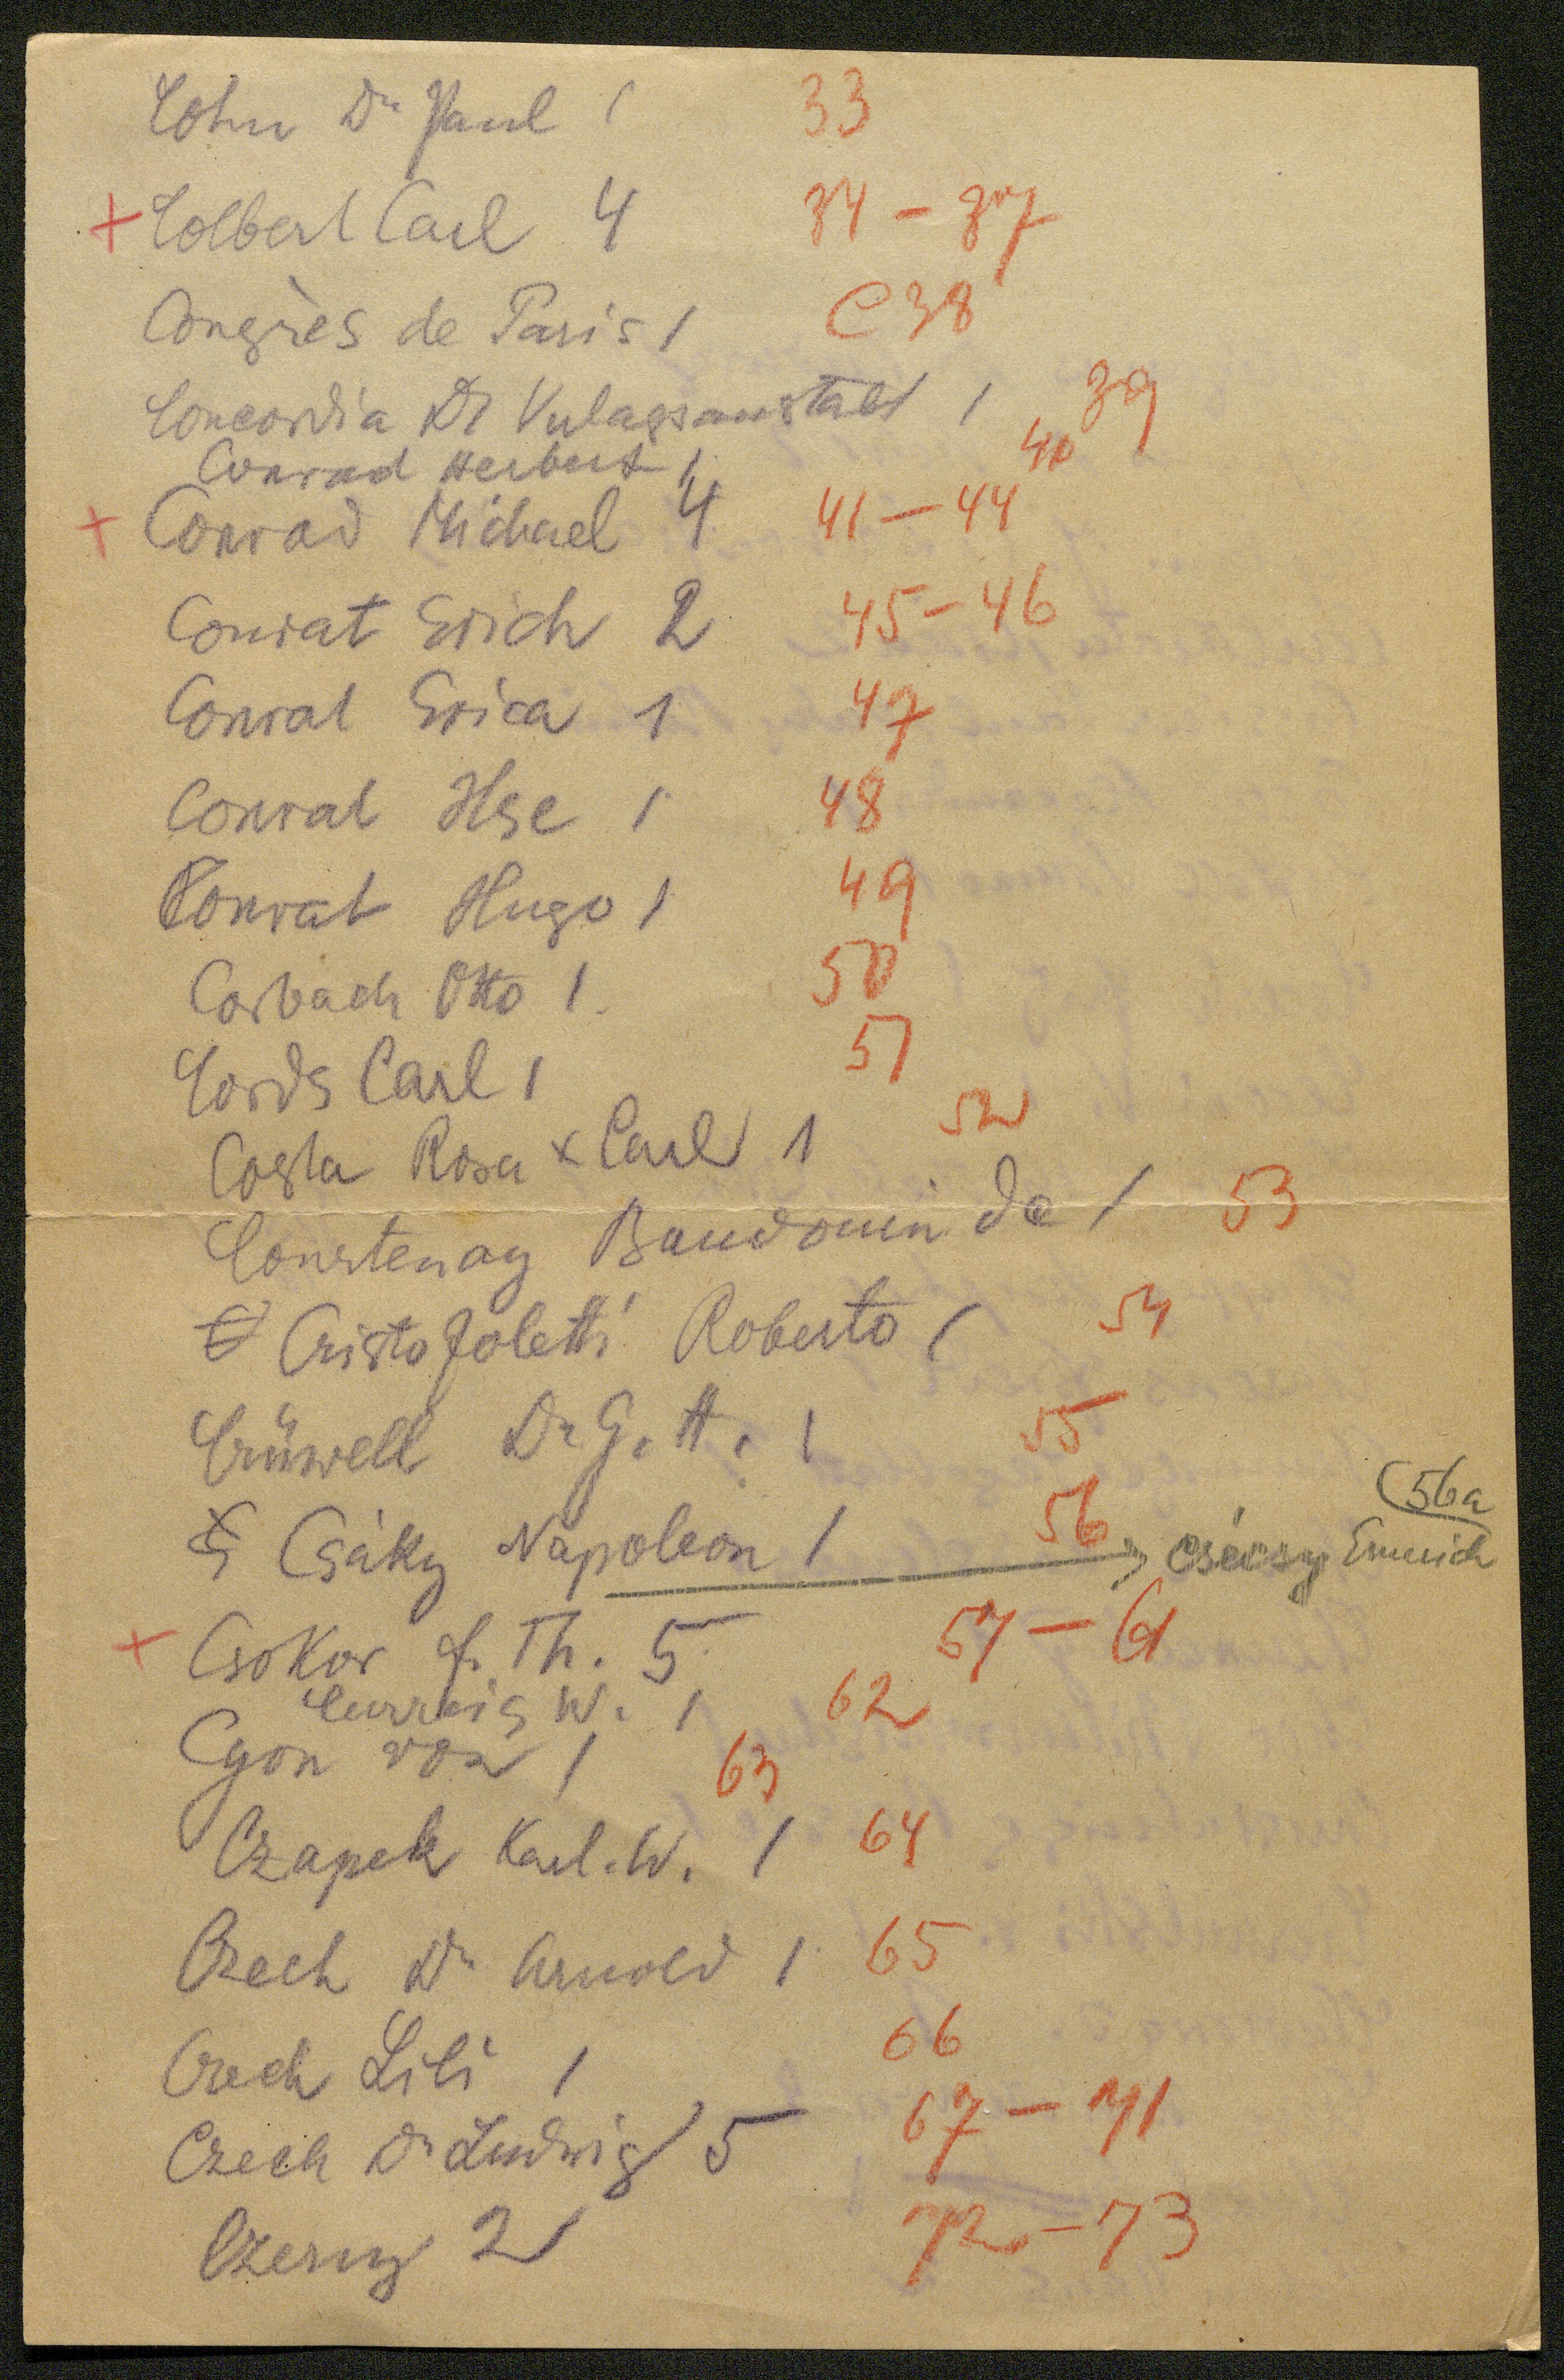 Cohn Dr Paul 1 33
+ Colbert Carl 4 34 - 37
Congrès de Paris 1 C 38
Concordia Dt Verlagsanstalt 1 39
Conrad Herbert 1 40
+ Conrad Michael 4 41 - 44
Conrat Erich 2 45 - 46
Conrat Erica 1 47
Conrat Ilse 1 48
Conrat Hugo 1 49
Corbach Otto 1. 50
Cords Carl 1 51
Costa Rosa x Carl 1 52
Courtenay Baudouin de 1 53
Cristofoletti Roberto 1 54
Crüwell Dr G. A. 1 55
Csáky Napoleon 1 56 56a
Csécsy Emerich
+ Csokor f. Th. 5 57 - 61
W. 1 62
Cyon von 1 63
Czapek Karl. W. 1 64
Czech Dr Arnold 1 65
Czech Lili 1 66
Czech Dr Ludwig 5 67 - 71
Czerny 2 72 - 73